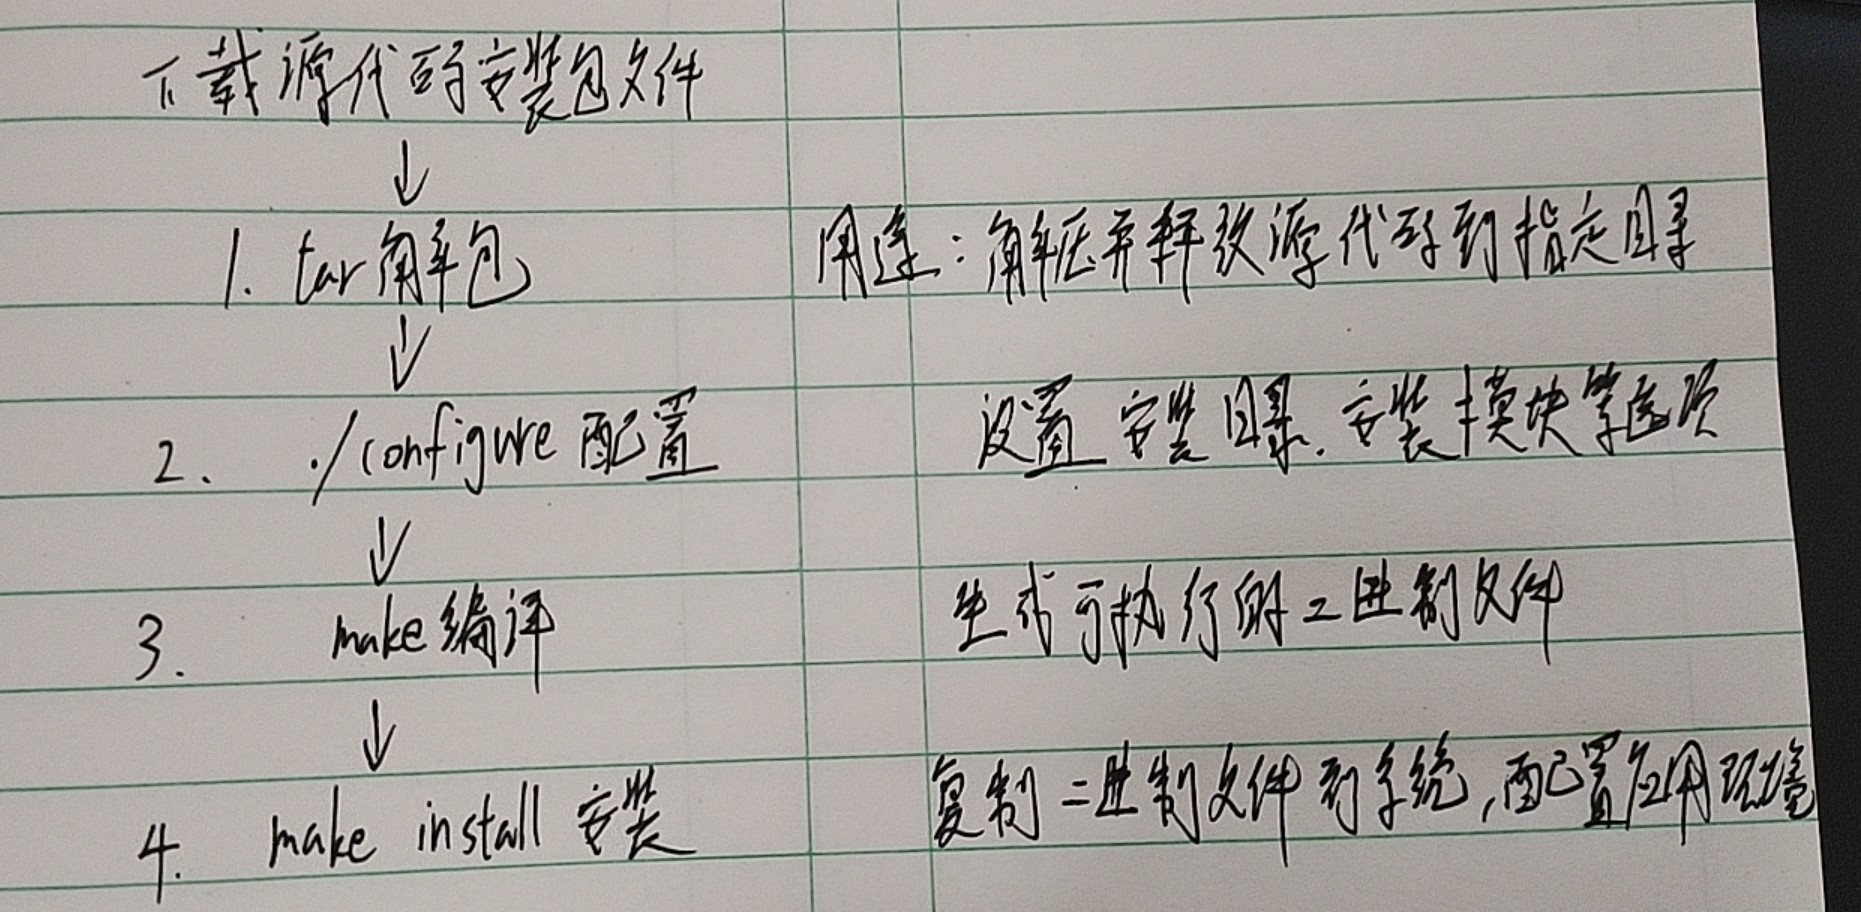 下载源代码安装包文件
↓
1. tar解包 用途：解压并释放源代码到指定目录
↓
2. ./configure 配置 设置安装目录.安装模块等选项
↓
3. make编译 生成可执行的二进制文件
↓
4. make install 安装 复制二进制文件到系统,配置应用环境